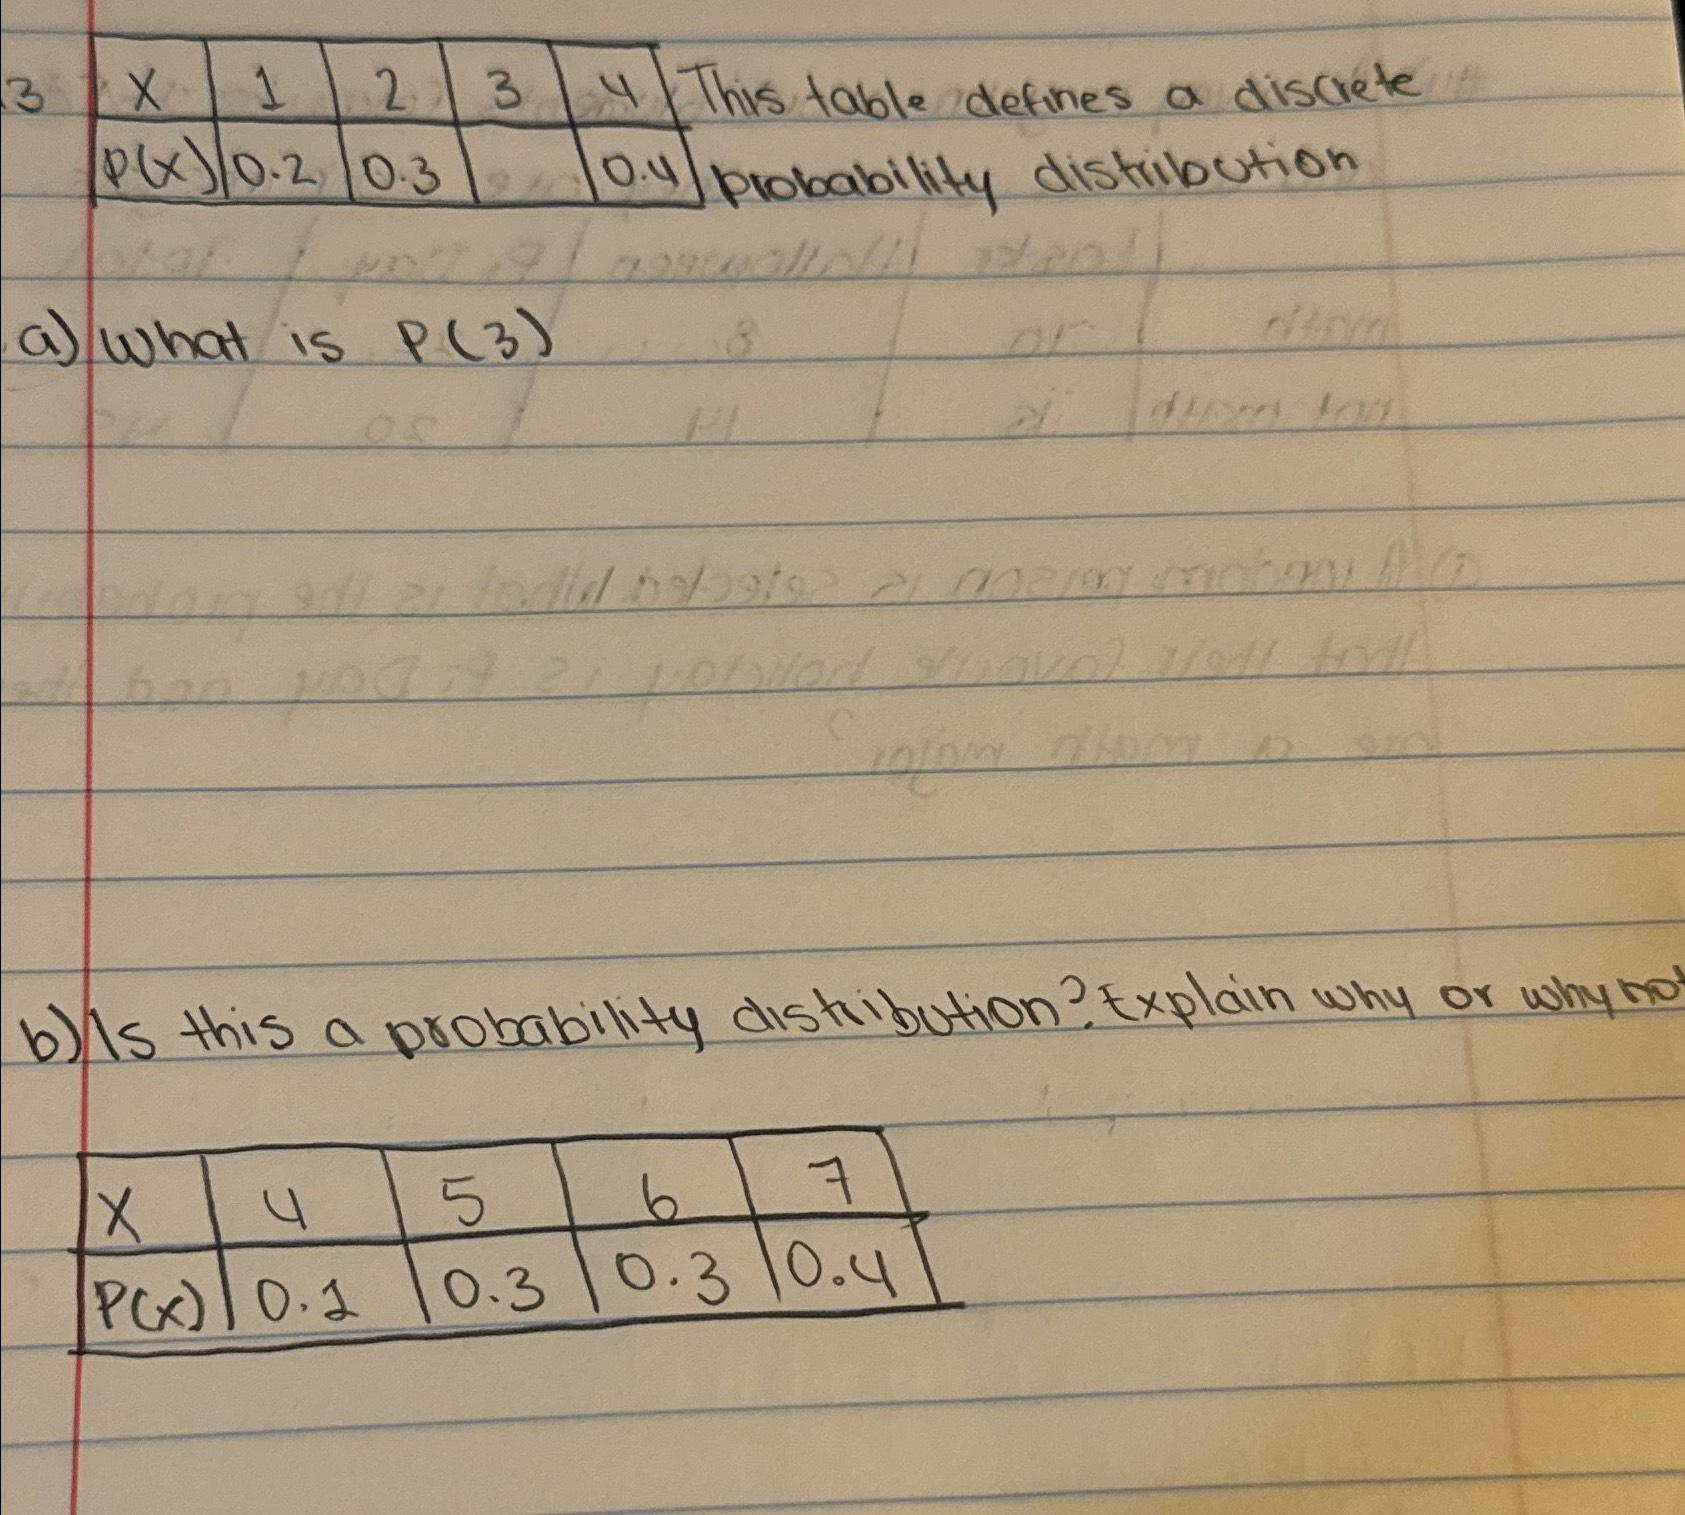 .3 X 1 2 3 4 This table defines a discrete
P(X) 0.2 0.3 0.4 probability distribution
a) What is P(3)
b) Is this a probability distribution? Explain why or why not
X 4 5 6 7
P(X) 0.1 0.3 0.3 0.4